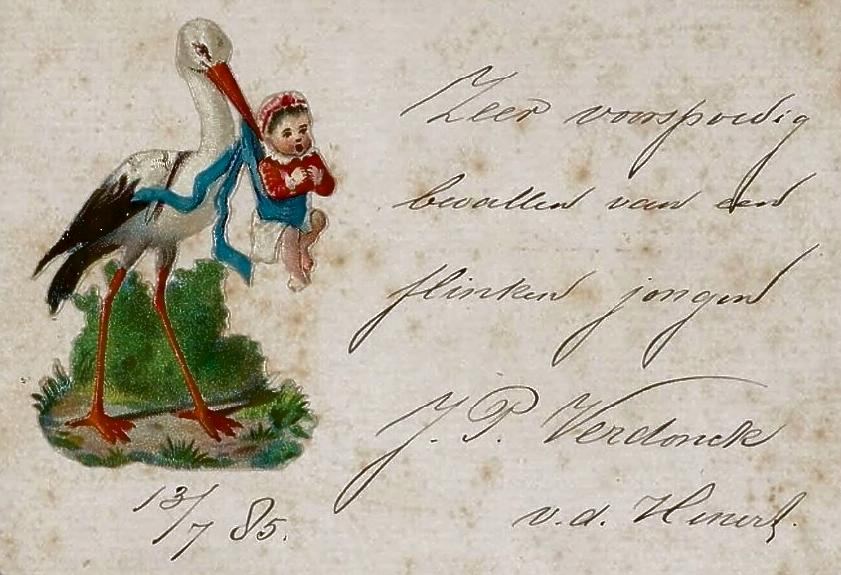 Zeer voorspoedig
bevallen van een
flinken jongen
J. P. Verdonck
v. d.
13/7 85.